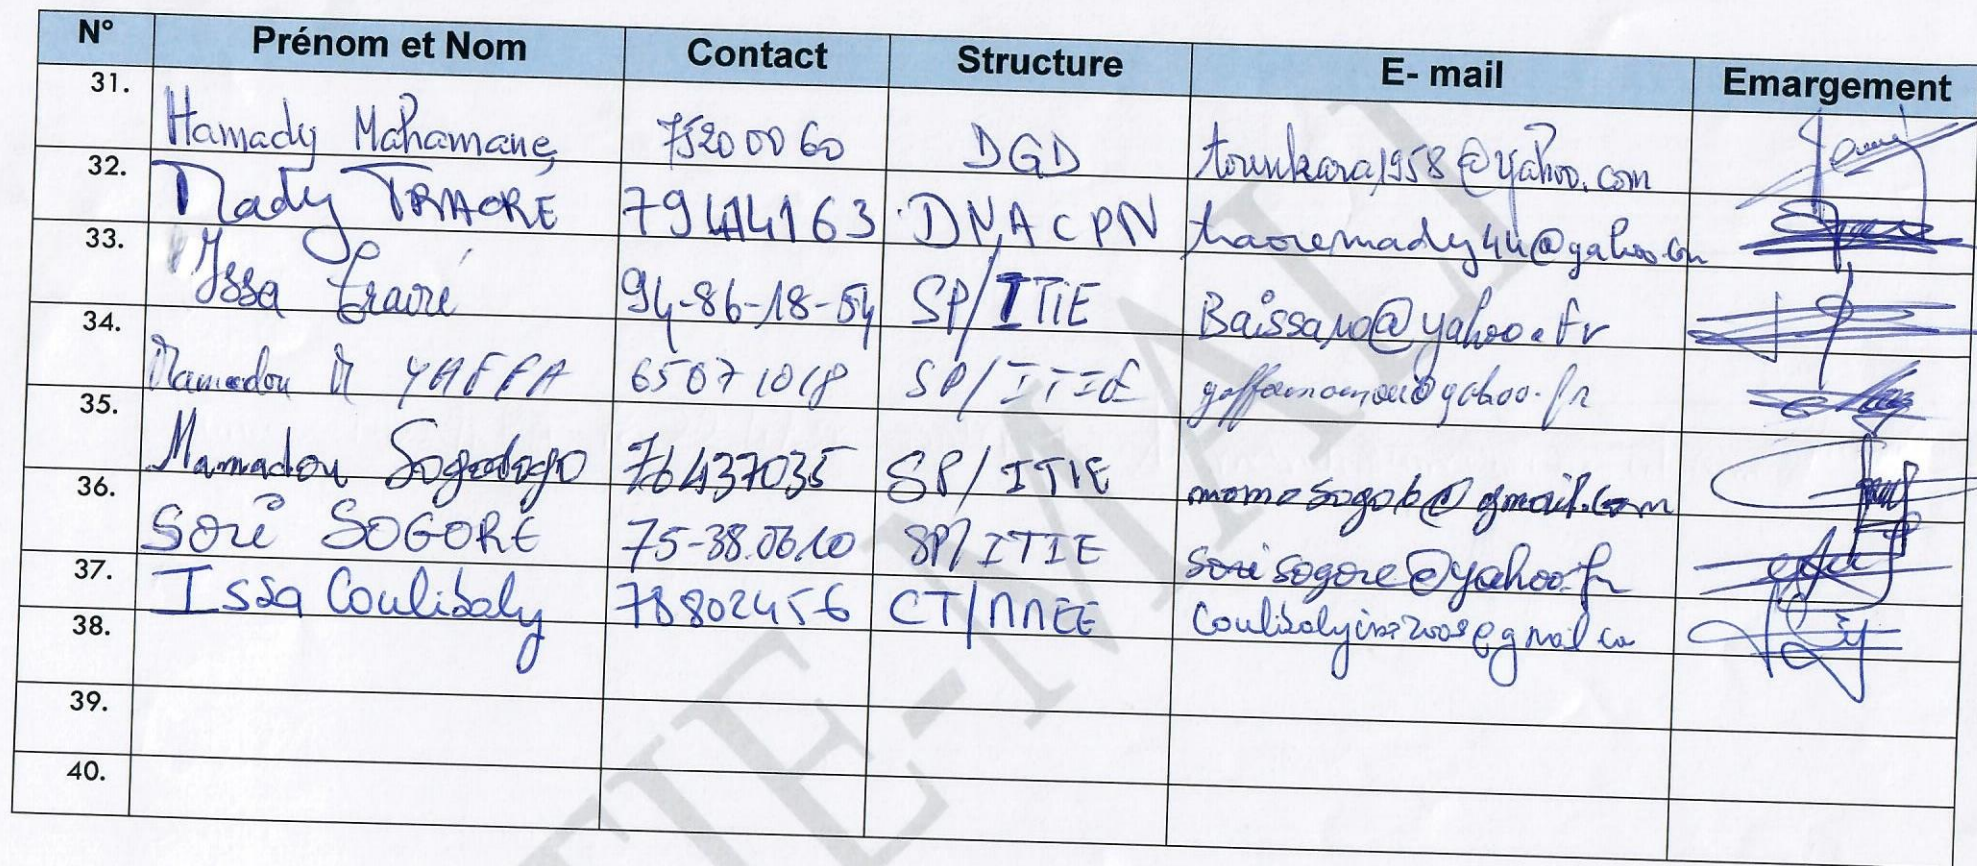 N° Prénom et Nom Contact Structure E- mail Emargement
31. Hamady Mahamane 75200060 DGD tounkara1958@yahoo.com
32. Mady TRAORE 79414163 DNACPN traoremady44@yahoo.com
33. Issa Traoré 94-86-18-54 SP/ITIE @yahoo.fr
34. Mamadou M YAFFA 65071018 SP/ITIE
35. Mamadou Sogodogo 76437035 SP/ITIE momosogob@gmail.com
36. Soré SOGORE 75-38.06.10 SP/ITIE sorisogore@yahoo.fr
37. Issa Coulibaly 78802456 CT/MMEE
38.
39.
40.
ITIE-MALI